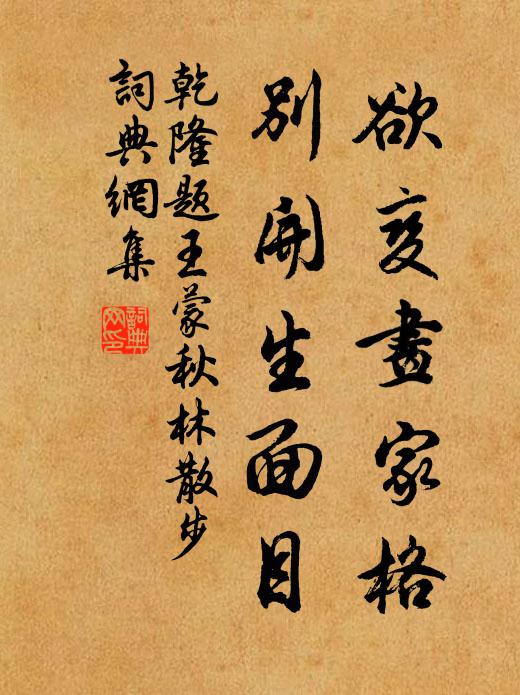 欲变畫家格
别開生面目
乾隆題王蒙秋林散步
詞典網集
詞典網印